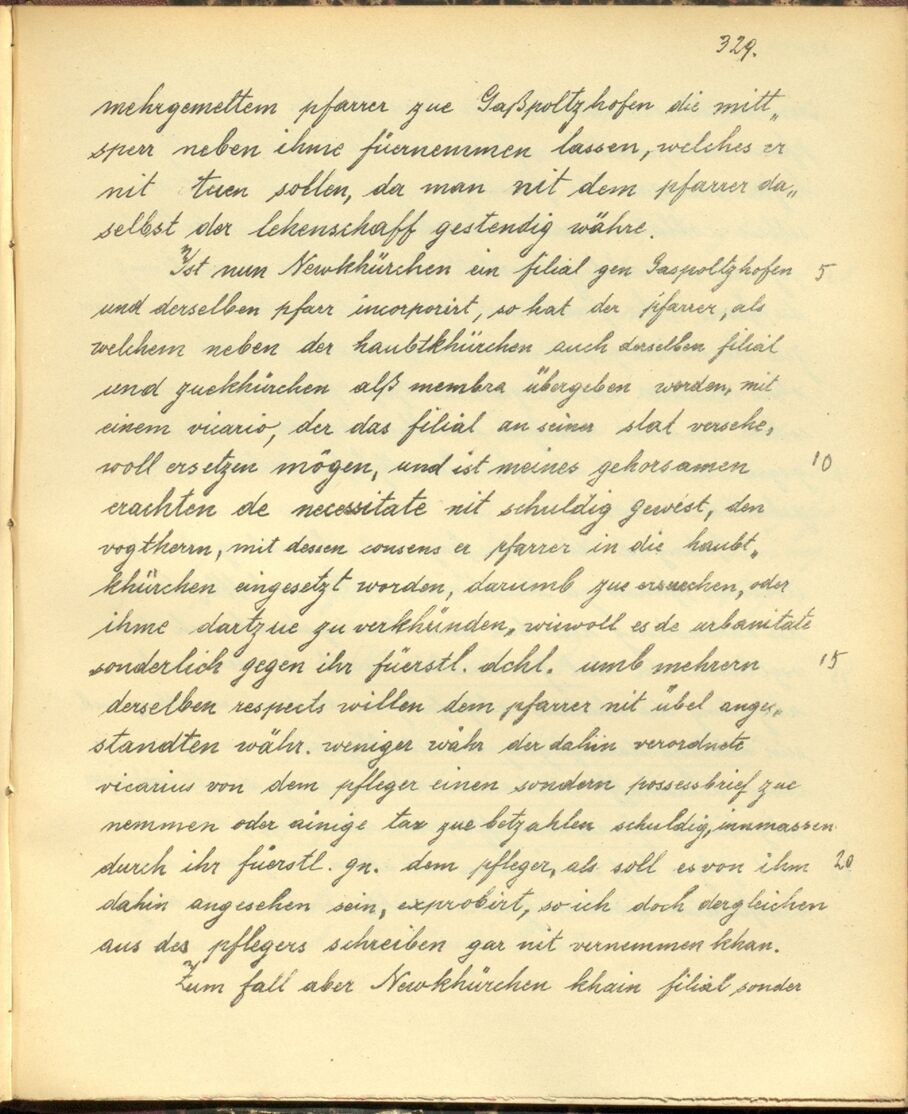 329.
mehrgemeltem pfarrer zue Gaßpoltzhofen die mitt„
sperr neben ihme füernemmen lassen, welches er
nit tuen sollen, da man nit dem pfarrer da„
selbst der lehenschaff gestendig währe.
Ist nun Newkhürchen ein filial gen Gaspoltzhofen 5
und derselben pfarr incorporirt, so hat der pfarrer, als
welchem neben der haubtkhürchen auch derselben filial
und zuekhürchen alß membra übergeben worden, mit
einem vicario, der das filial an seiner stat versehe,
woll ersetzen mögen, und ist meines gehorsamen 10
erachten de necessitate nit schuldig gewest, den
vogtherrn, mit dessen consens er pfarrer in die haubt„
khürchen eingesetzt worden, darumb zue ersuechen, oder
ihme dartzue zu verkhünden, wiewoll es de urbanitate
sonderlich gegen ihr füerstl. dchl. umb mehrern 15
derselben respects willen dem pfarrer nit übel ange„
standten währ. weniger währ der dahin verordnete
vicarius von dem pfleger einen sondern possessbrief zue
nemmen oder ainige tax zue betzahlen schuldig, innmassen
durch ihr füerstl. gn. dem pfleger, als soll es von ihm 20
dahin angesehen sein, exprobirt, so ich doch dergleichen
aus des pflegers schreiben gar nit vernemmen khan.
Zum fall aber Newkhürchen khain filial sonder